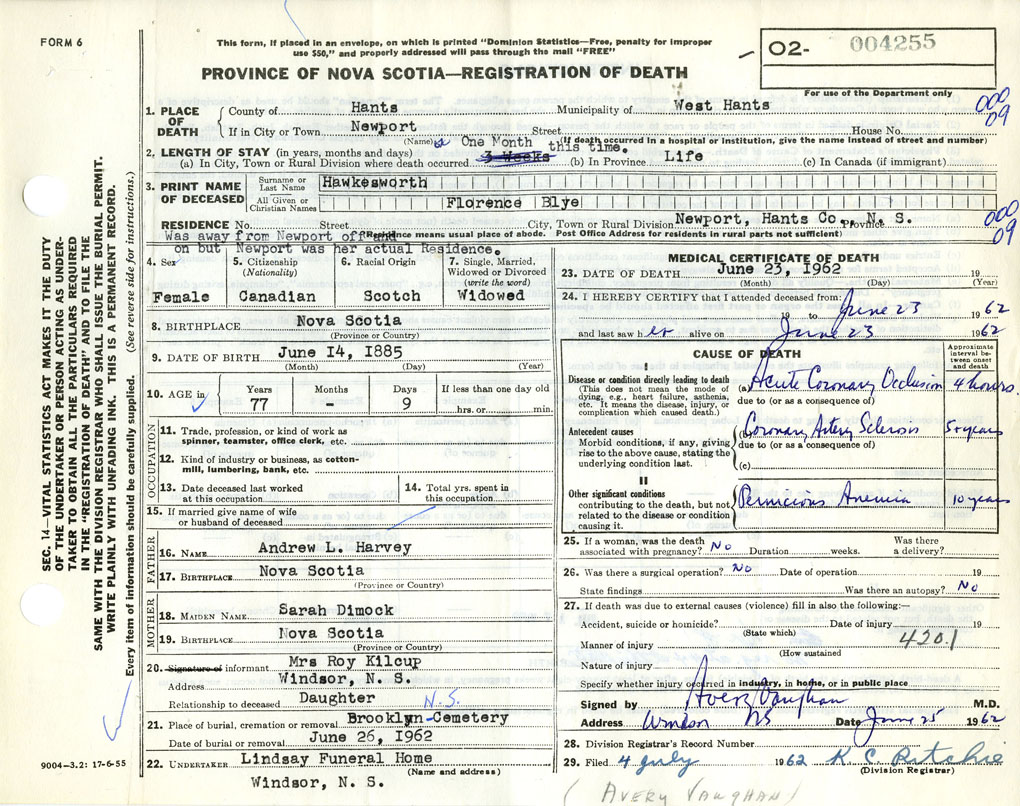 FORM 6
This form, if placed in an envelope, on which is printed "Dominion Statistics—Free, penalty for improper
use $50," and properly addressed will pass through the mail "FREE"
O2- 004255
For use of the Department only
PROVINCE OF NOVA SCOTIA—REGISTRATION OF DEATH
000
09
1. PLACE OF DEATH
County of Hants Municipality of West Hants
If in City or Town Newport Street House No.
(Name) (If death occurred in a hospital or institution, give the name instead of street and number)
One Month this time.
2. LENGTH OF STAY (in years, months and days)
(a) In City, Town or Rural Division where death occurred 3 Weeks (b) In Province Life (c) In Canada (if immigrant)
3. PRINT NAME OF DECEASED
Surname or Last Name Hawkesworth
All Given or Christian Names Florence Blye
RESIDENCE No. Street City, Town or Rural Division Newport, Hants Co., N. S. Province
000
09
Residence means usual place of abode. Post Office Address for residents in rural parts not sufficient)
Was away from Newport off and
on but Newport was her actual Residence.
4. Sex
Female
5. Citizenship
(Nationality)
Canadian
6. Racial Origin
Scotch
7. Single, Married,
Widowed or Divorced
(write the word)
Widowed
8. BIRTHPLACE Nova Scotia
(Province or Country)
9. DATE OF BIRTH June I4, I885
(Month) (Day) (Year)
10. AGE in
Years Months Days If less than one day old
77 - 9 hrs. or min.
OCCUPATION
11. Trade, profession, or kind of work as
spinner, teamster, office clerk, etc.
12. Kind of industry or business, as cotton-
mill, lumbering, bank, etc.
13. Date deceased last worked
at this occupation
14. Total yrs. spent in
this occupation
15. If married give name of wife
or husband of deceased
FATHER
16. NAME Andrew L. Harvey
17. BIRTHPLACE Nova Scotia
(Province or Country)
MOTHER
18. MAIDEN NAME Sarah Dimock
19. BIRTHPLACE Nova Scotia
(Province or Country)
20. Signature of informant Mrs Roy Kilcup
Address Windsor, N. S.
Relationship to deceased Daughter
N.S.
21. Place of burial, cremation or removal Brooklyn-Cemetery
Date of burial or removal June 26, I962
22. UNDERTAKER Lindsay Funeral Home
(Name and address)
Windsor, N. S.
MEDICAL CERTIFICATE OF DEATH
23. DATE OF DEATH June 23, I962 19
(Month) (Day) (Year)
24. I HEREBY CERTIFY that I attended deceased from:
19 to June 23 1962
and last saw her alive on June 23 1962
CAUSE OF DEATH
Approximate
interval be-
tween onset
and death
I
Disease or condition directly leading to death
(This does not mean the mode of
dying, e.g., heart failure, asthenia,
etc. It means the disease, injury, or
complication which caused death.)
(a) Acute Coronary Occlusion 4 hours.
due to (or as a consequence of)
Antecedent causes
Morbid conditions, if any, giving
rise to the above cause, stating the
underlying condition last.
(b) Coronary Artery Sclerosis 5+years
due to (or as a consequence of)
(c)
II
Other significant conditions
contributing to the death, but not
related to the disease or condition
causing it.
Pernicious Anemia 10 years
25. If a woman, was the death
associated with pregnancy? No Duration weeks. Was there
a delivery?
26. Was there a surgical operation? No Date of operation 19
State findings Was there an autopsy? No
27. If death was due to external causes (violence) fill in also the following:—
Accident, suicide or homicide? Date of injury 19
(State which)
Manner of injury 420.1
(How sustained
Nature of injury
Specify whether injury occurred in industry, in home, or in public place
Signed by Avery Vaughan M.D.
Address Windsor NS Date June 25 1962
28. Division Registrar's Record Number
29. Filed 4 July 1962 K. C. Ritchie
(Division Registrar)
(AVERY VAUGHAN)
SEC. 14—VITAL STATISTICS ACT MAKES IT THE DUTY
OF THE UNDERTAKER OR PERSON ACTING AS UNDER-
TAKER TO OBTAIN ALL THE PARTICULARS REQUIRED
IN THE "REGISTRATION OF DEATH" AND TO FILE THE
SAME WITH THE DIVISION REGISTRAR WHO SHALL ISSUE THE BURIAL PERMIT.
WRITE PLAINLY WITH UNFADING INK. THIS IS A PERMANENT RECORD.
Every item of information should be carefully supplied. (See reverse side for instructions.)
9004-3.2: 17-6-55